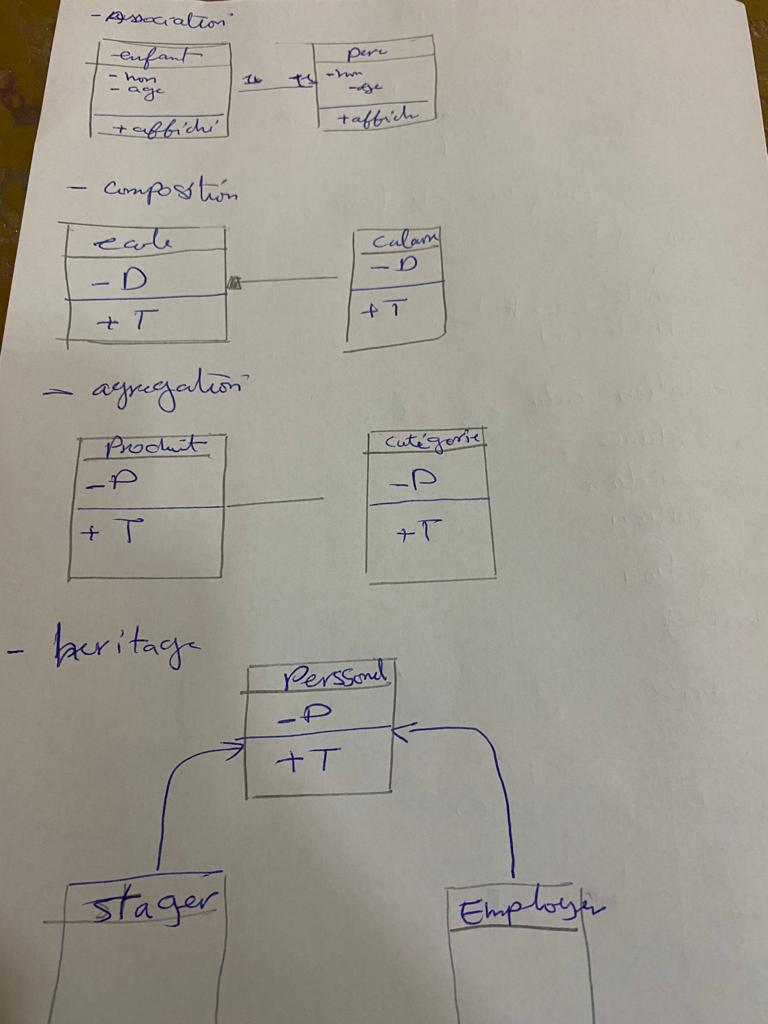 - Association
- enfant
- nom
- age
+ affichi
pere
- nom
- age
+ affich
- composition
ecole
- D
+ T
- D
+ T
- agregation
Produit
- P
+ T
Catégorie
- P
+ T
- heritage
Perssonel
- P
+ T
Stager
Employer